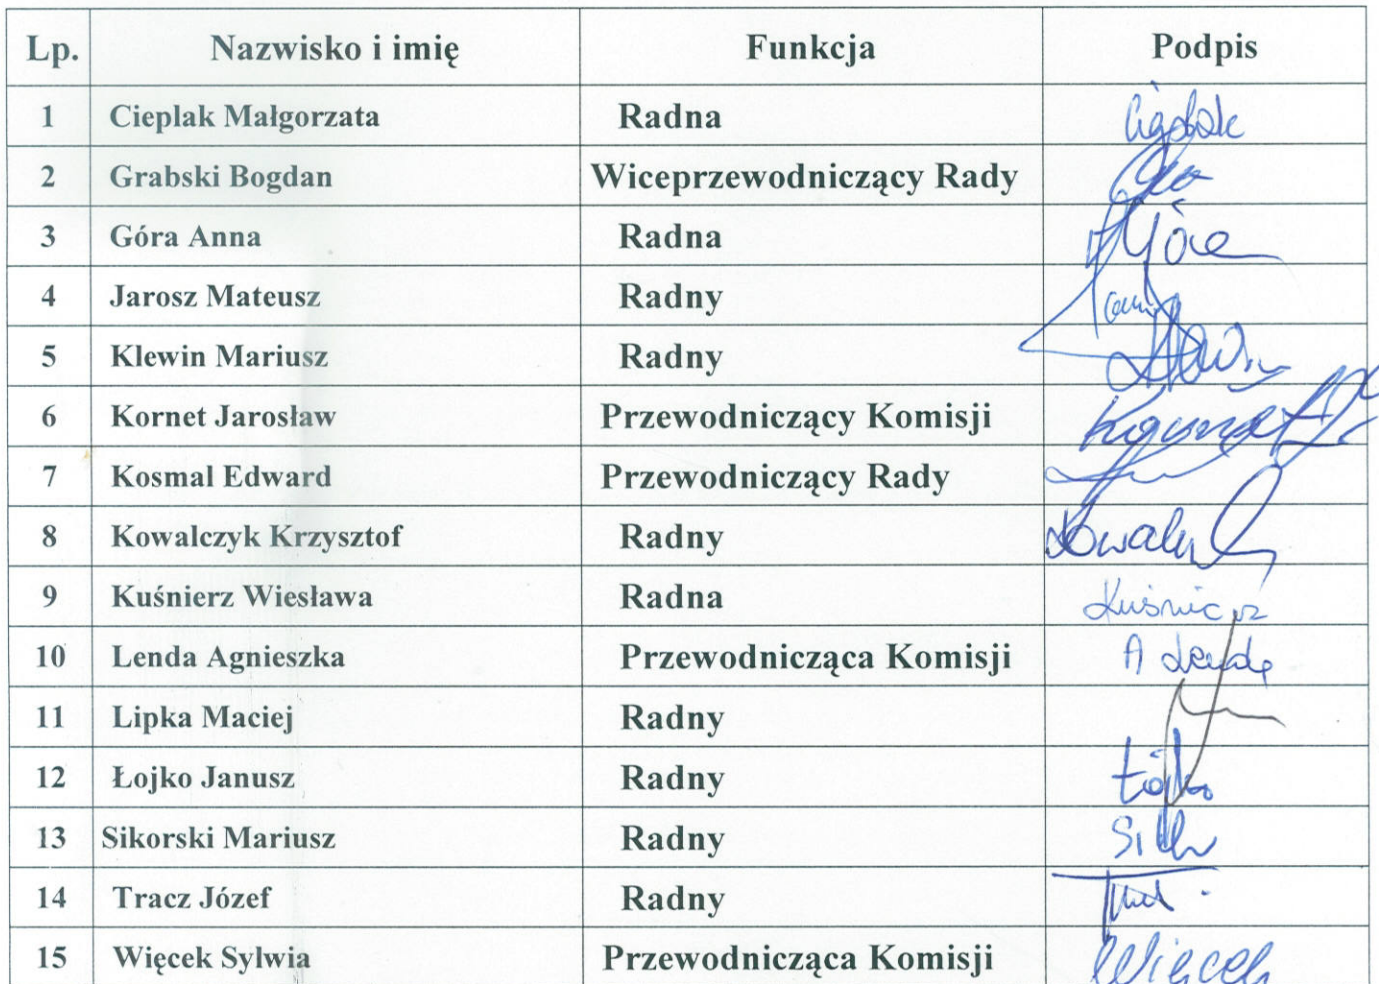 Lp. Nazwisko i imię Funkcja Podpis
1 Cieplak Małgorzata Radna
2 Grabski Bogdan Wiceprzewodniczący Rady
3 Góra Anna Radna Góra
4 Jarosz Mateusz Radny
5 Klewin Mariusz Radny
6 Kornet Jarosław Przewodniczący Komisji
7 Kosmal Edward Przewodniczący Rady
8 Kowalczyk Krzysztof Radny
9 Kuśnierz Wiesława Radna Kuśnierz
10 Lenda Agnieszka Przewodnicząca Komisji A Lenda
11 Lipka Maciej Radny
12 Łojko Janusz Radny
13 Sikorski Mariusz Radny
14 Tracz Józef Radny
15 Więcek Sylwia Przewodnicząca Komisji Więcek